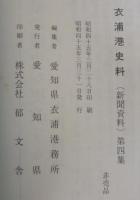 衣浦港史料（新聞資料）第四集
非売品
昭和四十五年三月二十八日印刷
昭和四十五年三月三十一日発行
編集者 愛知県衣浦港務所
発行者 愛知県
印刷者 株式会社 郁文舎